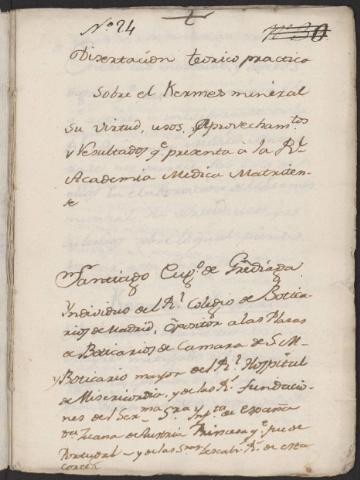 Nº 24
nº 30
Disertación teorico practica
sobre el Kermes mineral
su virtud, usos, Aprovecham.tos
y Resultados q.e presenta a la Rl.
Academia Medica Matriten-
se
Santiago Eug.o de
Yndividuo del Rl. Colegio de Botica-
rios de Madrid, Opositor a las Plazas
de Boticarios de Camara de S. M.
y Boticario mayor del Rl. Hospital
de Misericordia, y de las Rs. fundacio-
nes del Ser.ma Sra. Ynf.ta de España
Da. Juana de Austria Princesa q.e fue de
Portugal y de las Sras. Descalz.s Rs. de esta
Corte